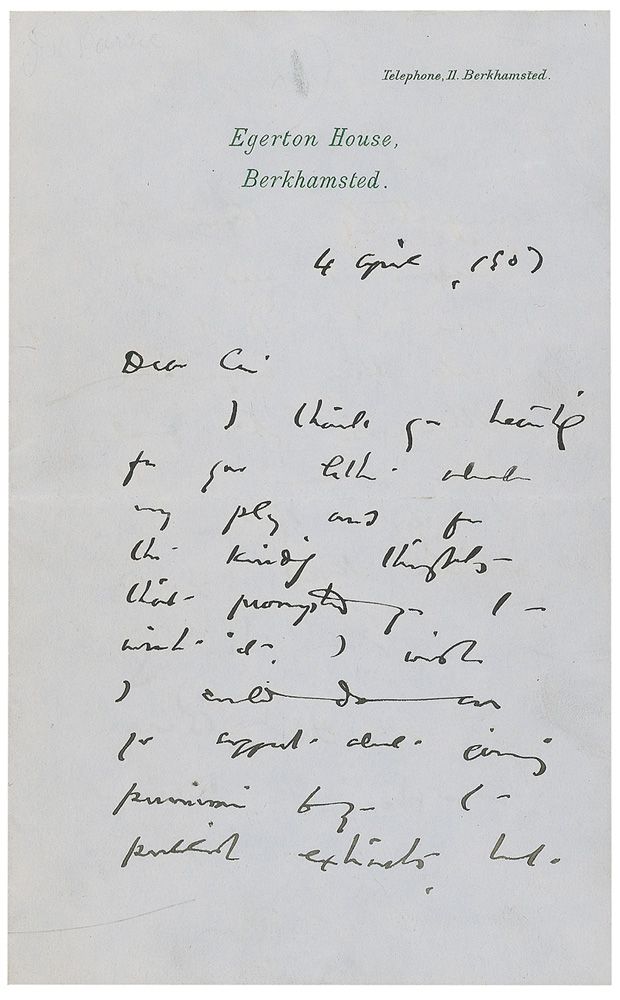 Telephone, 11. Berkhamsted.
Egerton House,
Berkhamsted.
4 April, 1907
Dear Sir
I thank you heartily
for your letter about
my play and for
the kindly thoughts
that prompted you to
write it. I wish
I could do as
you suggest about giving
permission to
publish extracts but